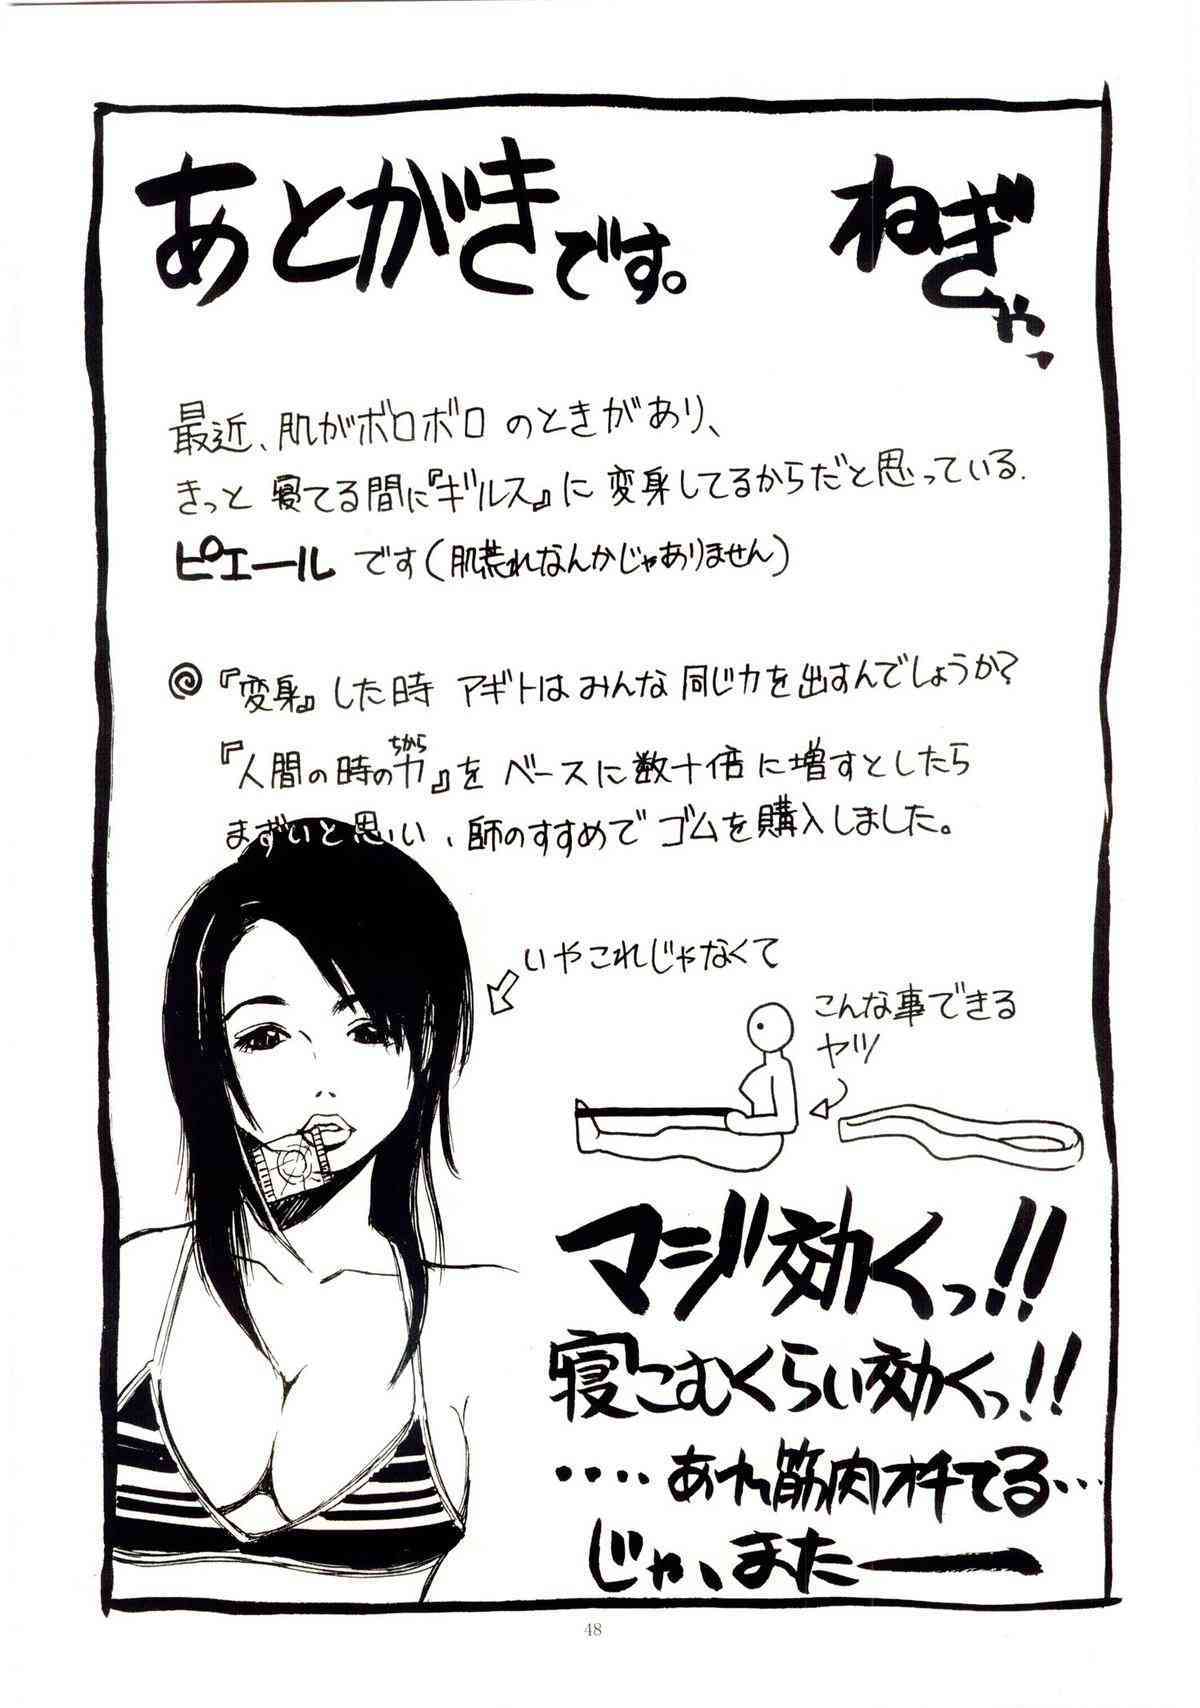 あとがきです。
ねぎゃっ
最近、肌がボロボロのときがあり、
きっと寝てる間に『ギルス』に変身してるからだと思っている.
ピエールです(肌荒れなんかじゃありません)
『変身』した時アギトはみんな同じ力を出すんでしょうか?
『人間の時の力』をベースに数十倍に増すとしたら
ちから
まずいと思い、師のすすめでゴムを購入しました。
いやこれじゃなくて
こんな事できる
ヤツ
マジ効くっ!!
寝こむくらい効くっ!!
‥‥あれ筋肉オチてる…
じゃ、またー
48